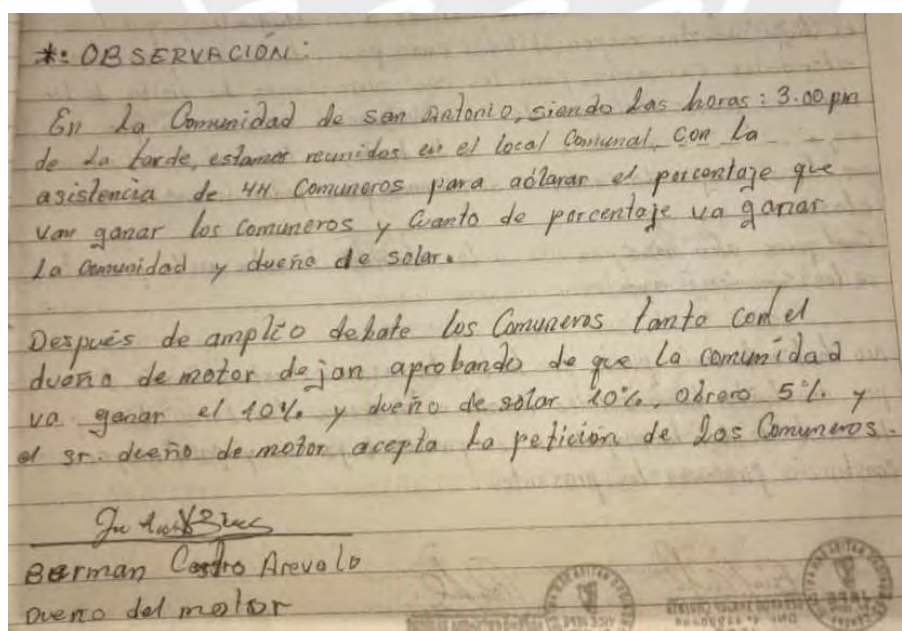 *: OBSERVACIÓN:
En La Comunidad de san Antonio, siendo Las horas: 3.00 pm
de La tarde, estamos reunidos en el local Comunal, con La
asistencia de 44 Comuneros para aclarar el porcentaje que
van ganar los Comuneros y Cuanto de porcentaje va ganar
La Comunidad y dueño de solar.
Después de amplio debate los Comuneros tanto con el
dueño de motor dejan aprobando de que La comunidad
va ganar el 10% y dueño de solar 10%, Obrero 5% y
el sr. dueño de motor acepta La petición de Los Comuneros.
Berman Castro Arevalo
Dueño del motor